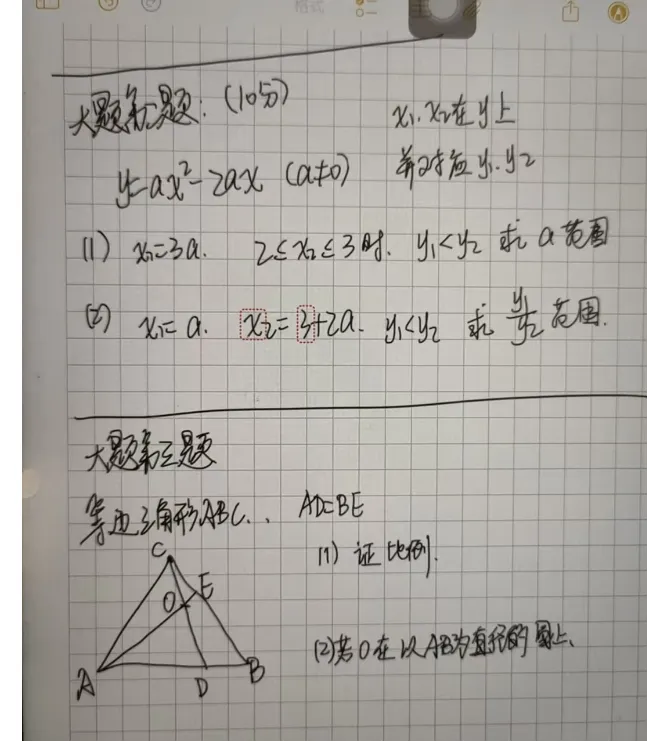 格式
大题第二题: (10分)
x₁. x₂在y上
y=ax²-2ax (a≠0)
并对应y₁. y₂
(1) x₁=3a. 2≤x₂≤3时. y₁<y₂ 求a范围
(2) x₁=a. x₂=3+2a. y₁<y₂ 求 y₁/y₂ 范围.
大题第三题
等边三角形ABC.. AD=BE
(1) 证比例.
C
E
O
(2)若O在以AB为直径的圆上、
A
D
B